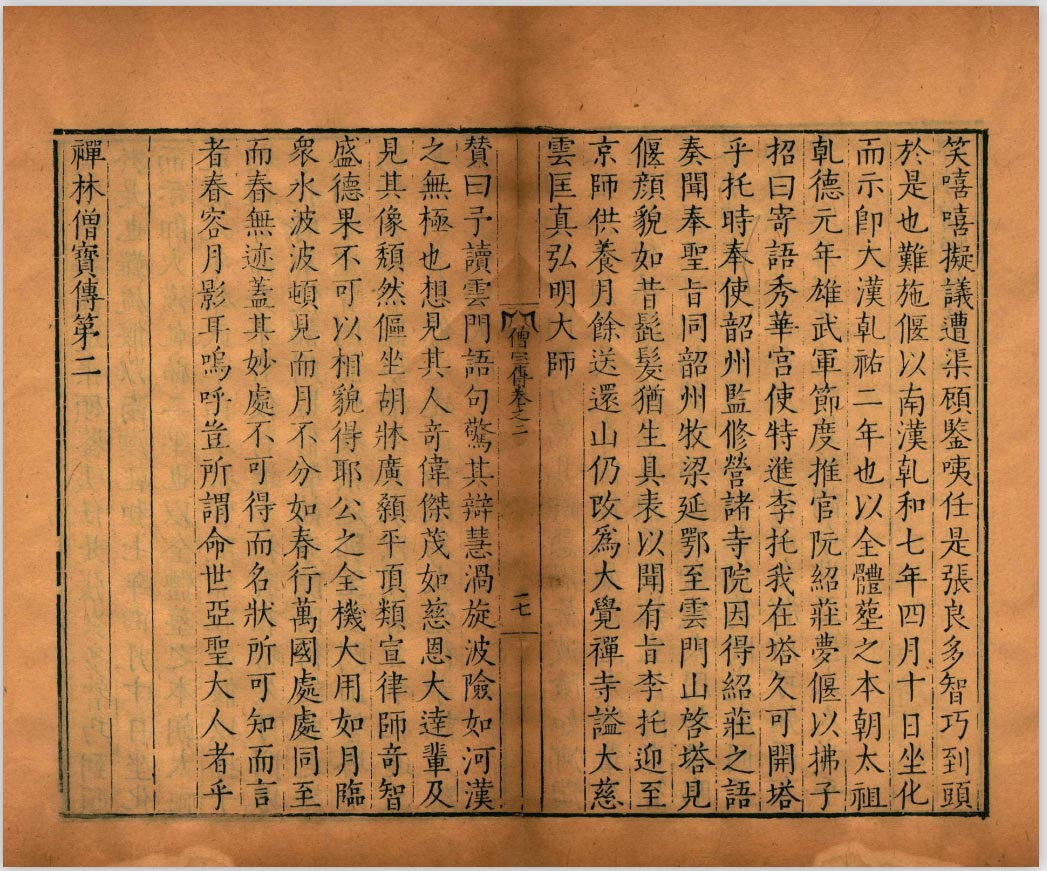 笑嘻嘻擬議遭渠顧鑒咦任是張良多智巧到頭
於是也難施偃以南漢乹和七年四月十日坐化
而示卽大漢乹祐二年也以全體塟之本朝太祖
乹德元年雄武軍節度推官阮紹莊夢偃以拂子
招曰寄語秀華宮使特進李托我在塔久可開塔
乎托時奉使韶州監修營諸寺院因得紹莊之語
奏聞奉聖旨同韶州牧梁延鄂至雲門山啓塔見
偃顏貌如昔髭髮猶生具表以聞有旨李托迎至
京師供養月餘送還山仍改爲大覺禪寺謚大慈
雲匡真弘明大師
僧宝傳卷之二
十七
賛曰予讀雲門語句驚其辯慧渦旋波險如河漢
之無極也想見其人奇偉傑茂如慈恩大逹輩及
見其像頹然傴坐胡牀廣顙平頂類宣律師奇智
盛德果不可以相貌得耶公之全機大用如月臨
衆水波波頓見而月不分如春行萬國處處同至
而春無迹蓋其妙處不可得而名狀所可知而言
者春容月影耳嗚呼豈所謂命世亞聖大人者乎
禪林僧寶傳第二